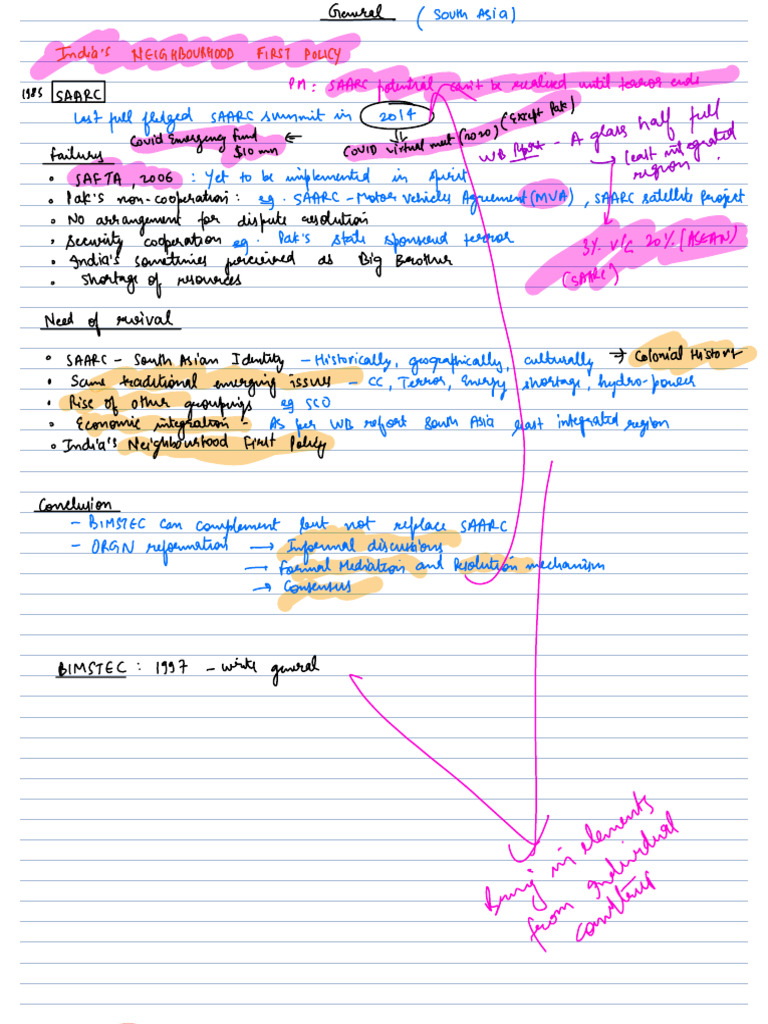 General (South Asia)
India's NEIGHBOURHOOD FIRST POLICY
PM: SAARC potential can't be realised until terror ends
1985 SAARC
Last full fledged SAARC summit in 2014
Covid Emergency fund $10 mn ←
COVID virtual meet (2020) (Except Pak)
WB Report - A glass half full
→ least integrated region.
3% v/s 20% (ASEAN)
(SAARC)
Failures
• SAFTA, 2006 : Yet to be implemented in spirit
• Pak's non-cooperation: eg. SAARC - Motor Vehicles Agreement (MVA), SAARC satellite Project
• NO arrangement for dispute resolution
• Security cooperation eg. Pak's state sponsored terror
• India's sometimes perceived as Big Brother
• Shortage of resources
Need of revival
• SAARC - South Asian Identity - Historically, geographically, culturally → Colonial History
• Same traditional emerging issues - CC, Terror, Energy shortage, hydro-power
• Rise of other groupings eg SCO
• Economic integration - As per WB report South Asia least integrated region
• India's Neighbourhood First Policy
Conclusion
- BIMSTEC can complement but not replace SAARC
- ORGN reformation → Informal discussions
→ Formal Mediation and Resolution mechanism
→ Consensus
BIMSTEC : 1997 - write general
Bring in elements
from individual
countries